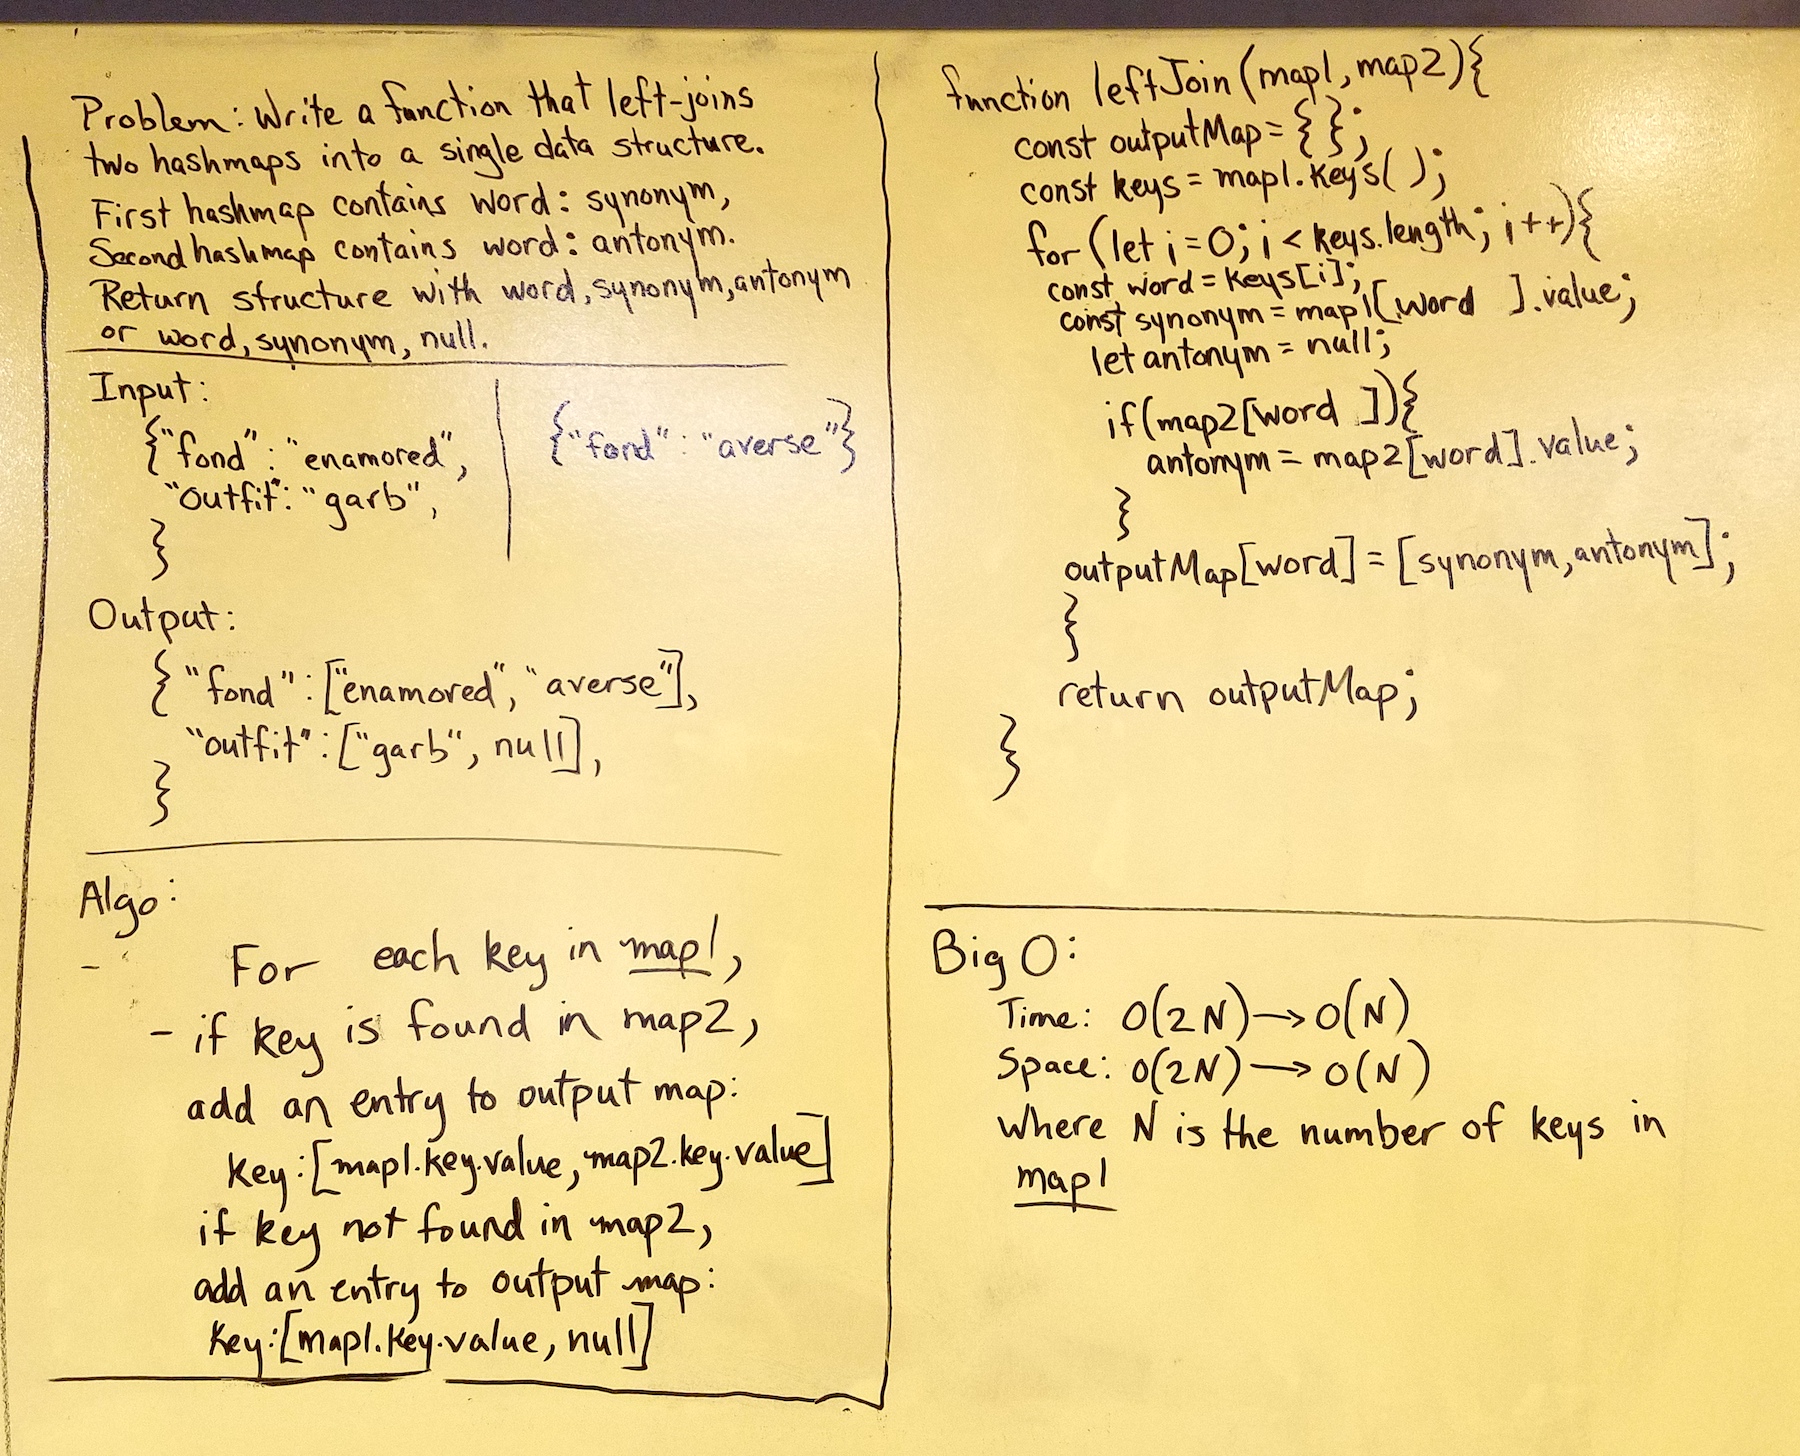 Problem: Write a function that left-joins
two hashmaps into a single data structure.
First hashmap contains word: synonym,
Second hashmap contains word: antonym.
Return structure with word, synonym, antonym
or word, synonym, null.
Input:
{"fond": "enamored",
"outfit": "garb",
}
{"fond": "averse"}
Output:
{ "fond": ["enamored", "averse"],
"outfit": ["garb", null],
}
Algo:
- For each key in map1,
- if key is found in map2,
add an entry to output map:
key: [map1.key.value, map2.key.value]
if key not found in map2,
add an entry to output map:
key: [map1.key.value, null]
function leftJoin(map1, map2){
const outputMap = {};
const keys = map1.keys( );
for (let i = 0; i < keys.length; i++){
const word = keys[i];
const synonym = map1[word ].value;
let antonym = null;
if(map2[word ]){
antonym = map2[word].value;
}
outputMap[word] = [synonym, antonym];
}
return outputMap;
}
Big O:
Time: O(2N) → O(N)
Space: O(2N) → O(N)
where N is the number of keys in
map1